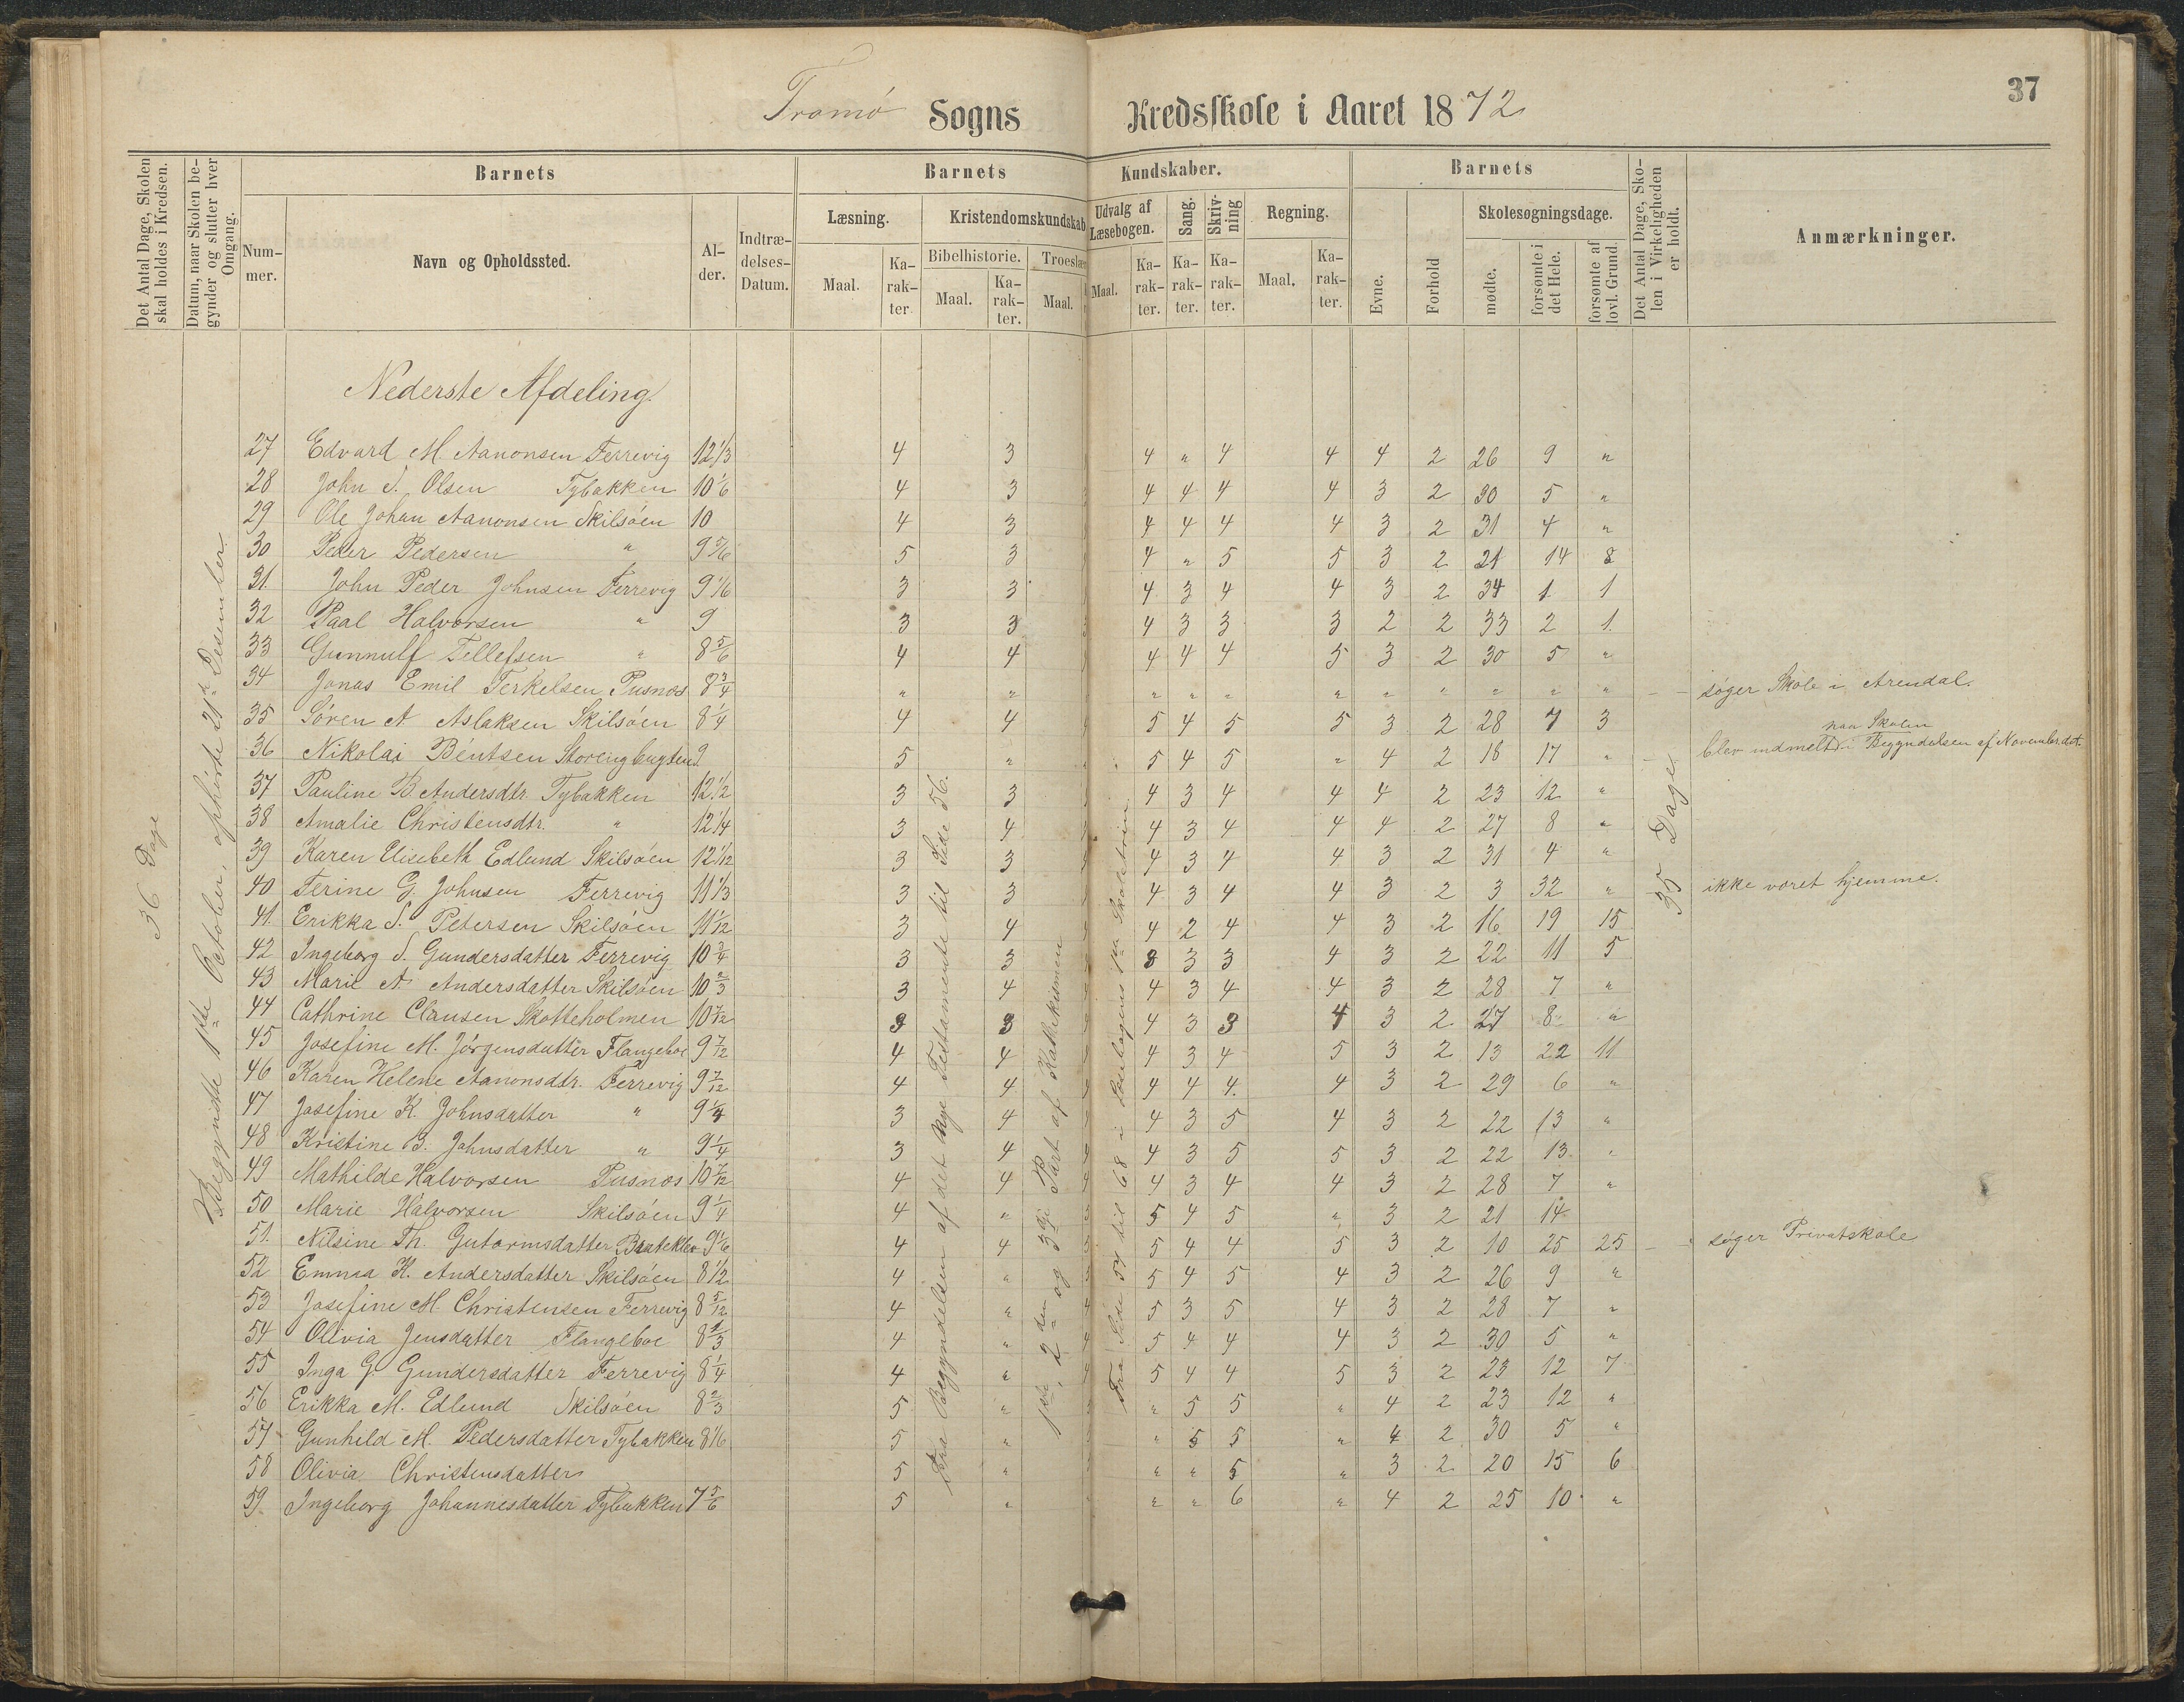 37
Tromø Sogns Kredsskole i Aaret 1872
Det Antal Dage, Skolen skal holdes i Kredsen.
Datum, naar Skolen begynder og slutter hver Omgang.
Barnets
Nummer.
Navn og Opholdssted.
Alder.
Indtrædelses-Datum.
Barnets Kundskaber.
Læsning.
Maal.
Karakter.
Kristendomskundskab
Bibelhistorie.
Maal.
Karakter.
Troeslær
Maal.
Udvalg af Læsebogen.
Maal.
Karakter.
Sang.
Karakter.
Skrivning
Karakter.
Regning.
Maal.
Karakter.
Barnets
Evne.
Forhold
Skolesøgningsdage.
mødte.
forsømte i det Hele.
forsømte af lovl. Grund.
Det Antal Dage, Skolen i Virkeligheden er holdt.
Anmærkninger.
36 Dage
Begyndte 1ste October, ophørte 21de Desember.
Nederste Afdeling.
27 Edvard M. Aanonsen Ferrevig 12 1/3 4 3 4 " 4 4 4 2 26 9 "
28 John S. Olsen Tybakken 10 1/6 4 3 4 4 4 4 3 2 30 5 "
29 Ole Johan Aanonsen Skilsøen 10 4 3 4 4 4 4 3 2 31 4 "
30 Peder Pedersen " 9 5/6 5 3 4 " 5 5 3 2 21 14 8
31. John Peder Johnsen Ferrevig 9 1/6 3 3 4 3 4 4 3 2 34 1 1
32 Paal Halvorsen " 9 3 3 4 3 3 3 2 2 33 2 1.
33 Gunnulf Tellefsen " 8 5/6 4 4 4 4 4 5 3 2 30 5 "
34 Jonas Emil Terkelsen Pusnes 8 3/4 " " " " " " " " " " " søger Skole i Arendal.
35 Søren A. Aslaksen Skilsøen 8 1/4 4 4 5 4 5 5 3 2 28 7 3
36 Nikolai Bentsen Storengbugten 9 5 " 5 4 5 " 4 2 18 17 " blev indmeldt paa Skolen i Begyndelsen af November dette.
37 Pauline B. Andersdtr. Tybakken 12 1/2 3 3 4 3 4 4 4 2 23 12 "
38 Amalie Christensdtr. " 12 1/4 3 4 4 3 4 4 4 2 27 8 "
39 Karen Elisebeth Edlund Skilsøen 12 1/12 3 3 4 3 4 4 3 2 31 4 "
40 Terine G. Johnsen Ferrevig 11 1/3 3 3 4 3 4 4 3 2 3 32 " ikke været hjemme.
41. Erikka S. Petersen Skilsøen 11 1/12 3 4 4 2 4 4 3 2 16 19 15
42 Ingeborg S. Gundersdatter Ferrevig 10 3/4 3 3 3 3 3 4 3 2 22 11 5
43 Marie A. Andersdatter Skilsøen 10 2/3 3 4 4 3 4 4 3 2 28 7 "
44 Cathrine Clausen Skotteholmen 10 7/12 3 3 4 3 3 4 3 2 27 8 "
45 Josefine M. Jörgensdatter Flangeboe 9 7/12 4 4 4 3 4 5 3 2 13 22 11
46 Karen Helene Aanonsdtr. Ferrevig 9 7/12 4 4 4 4 4. 4 3 2 29 6 "
47 Josefine K. Johnsdatter " 9 1/4 3 4 4 3 5 4 3 2 22 13 "
48 Kristine B. Johnsdatter " 9 1/4 3 4 4 3 5 5 3 2 22 13 "
49 Mathilde Halvorsen Pusnes 10 7/12 4 4 4 3 4 4 3 2 28 7 "
50 Marie Halvorsen Skilsøen 9 1/4 4 " 5 4 5 " 3 2 21 14
51. Nilsine Th. Gutormsdatter Bratteklev 9 1/6 4 4 5 4 4 5 3 2 10 25 25 søger Privatskole
52 Emma H. Andersdatter Skilsøen 8 1/2 4 " 5 4 5 4 3 2 26 9 "
53 Josefine M. Christensen Ferrevig 8 5/12 4 " 5 3 5 4 3 2 28 7 "
54 Olivia Jensdatter Flangeboe 8 1/3 4 " 5 4 4 4 3 2 30 5 "
55 Inga G. Gundersdatter Ferrevig 8 1/4 4 " 5 4 4 5 3 2 23 12 7
56 Erikka M. Edlund Skilsøen 8 2/3 5 " " 5 5 " 4 2 23 12 "
57 Gunhild M. Pedersdatter Tybakken 8 1/6 5 " " 5 5 " 4 2 30 5 "
58 Olivia Christensdatter 5 " " " 5 " 3 2 20 15 6
59. Ingeborg Johannesdatter Tybakken 7 5/6 5 " " " 6 " 4 2 25 10 "
Fra Begyndelsen af det Nye Testamente til Side 56.
1ste, 2den og 3die Part af Kathekismen
Fra Side 54 til 68 i Læsebogens 1ste Skoletrin
35 Dage